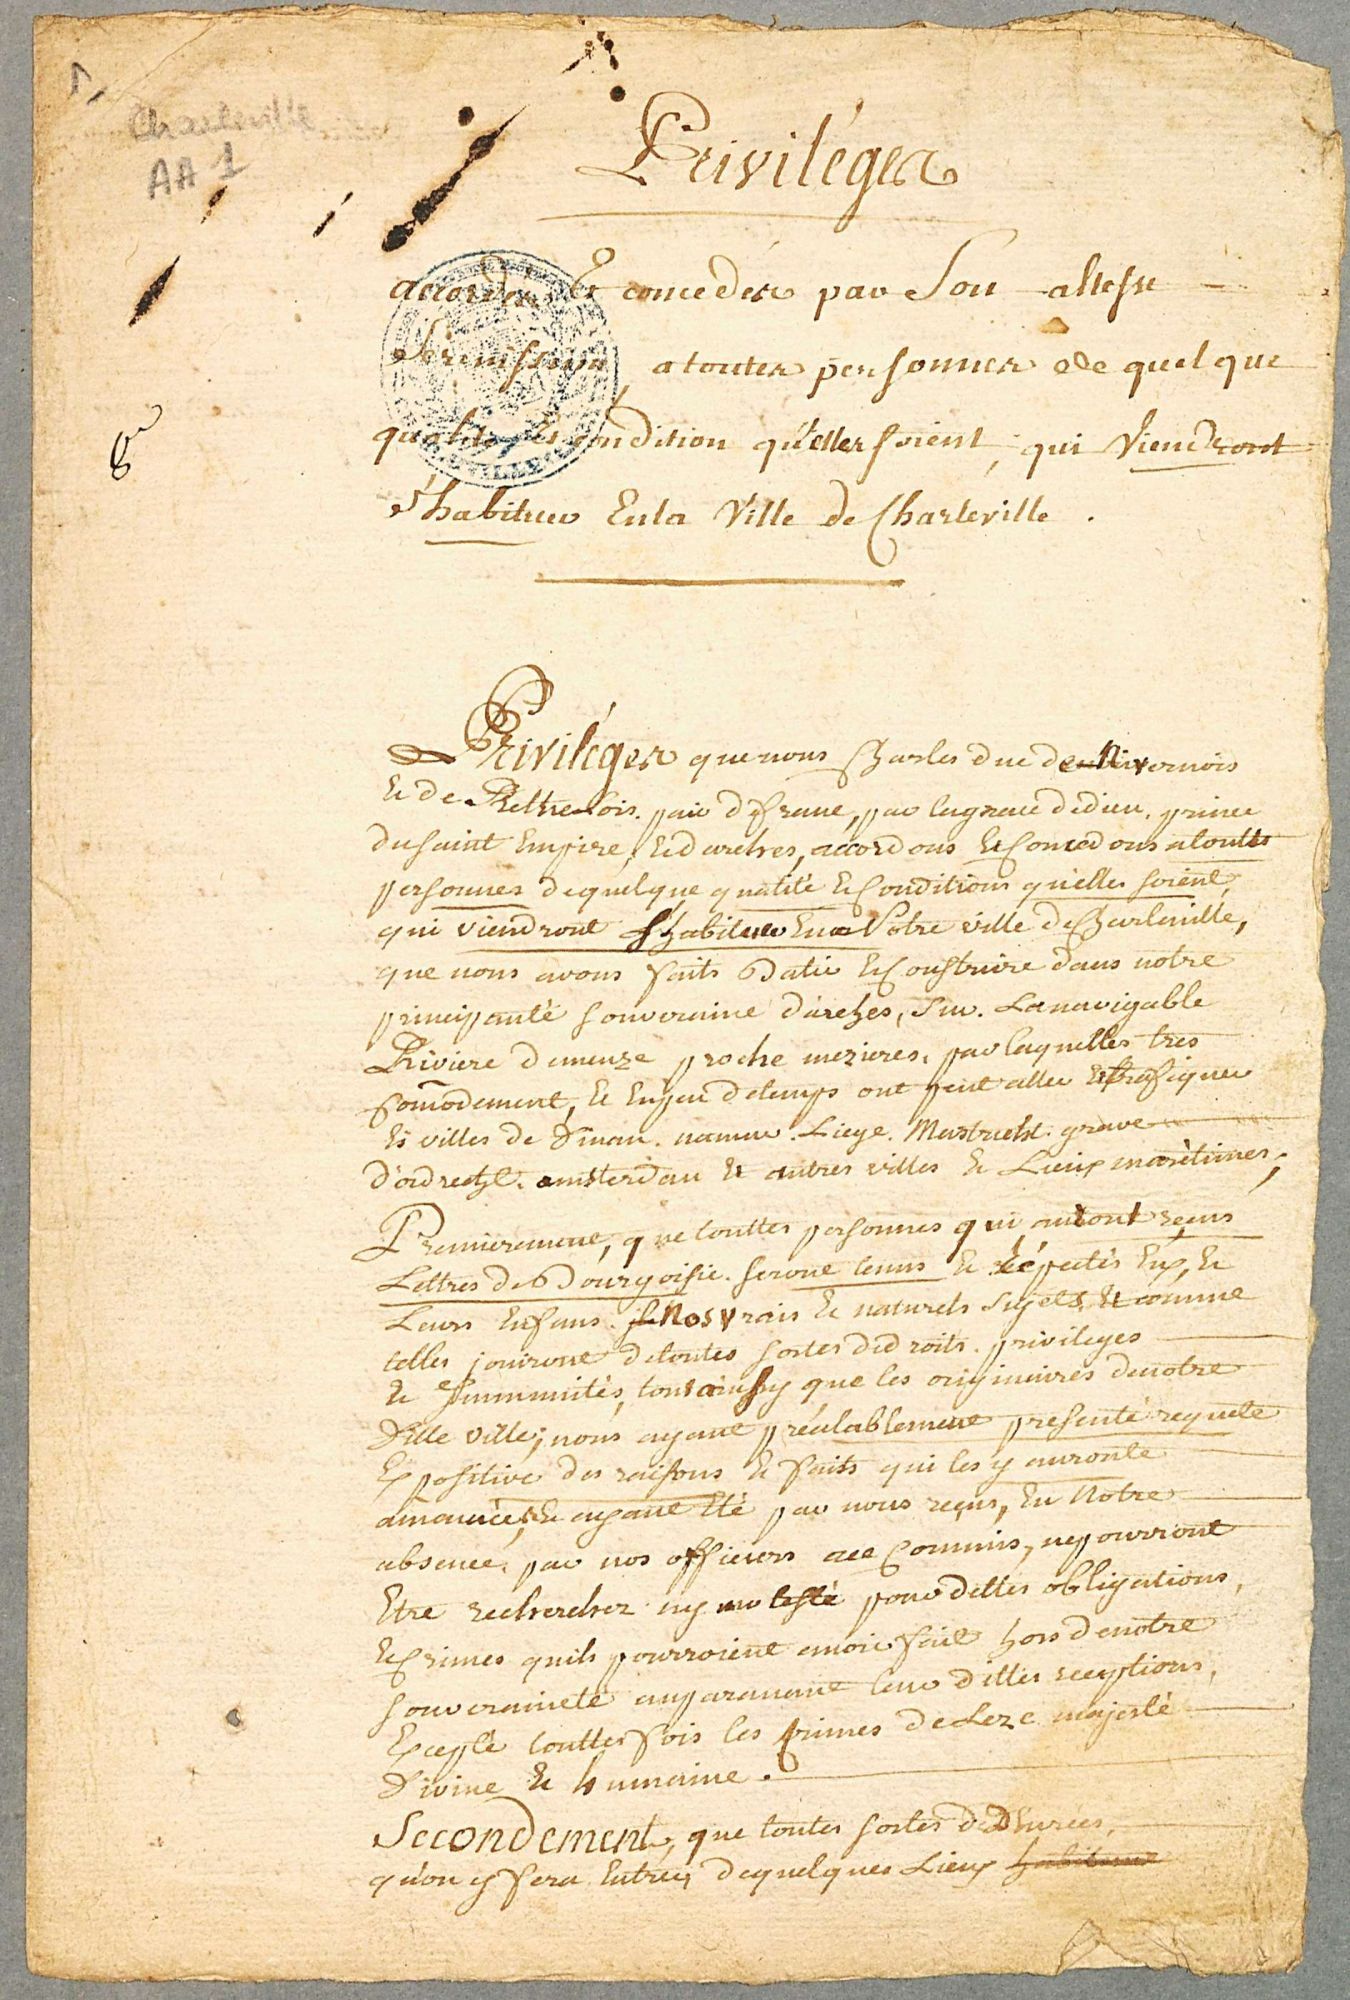 1.
Charleville
AA 1
Privileges
accordes Et concedés par Son altesse
Serenissime, a toutes personnes de quelque
qualité Et condition qu'elles soient, qui Viendront
s'habituer En la Ville de Charleville.
8e
Privileges que nous Charles duc de Nivernois
Et de Rethelois. pair de france, par la grace de dieu. prince
du saint Empire, Et d'arches, accordons Et Concedons a touttes
personnes de quelque qualité Et Conditions qu'elles soient,
qui viendront s'habituer En Notre ville de Charleville,
que nous avons faits Batir Et Construire dans notre
principauté souveraine d'arches, sur. La navigable
Riviere de meuze proche mezieres. par laquelles tres
Comodement, Et En peu de temps ont peut aller Et trafiquer
Es villes de Dinan. namur. Liege. Mastricht. grave
d'ordrecht. amsterdam Et autres villes Et Lieux maritimes;
Premierement, que touttes personnes qui auront reçus
Lettres de Bourgoisie. seront tenus Et réputés Eux, Et
Leurs Enfans. Nos vrais Et naturels sujets, Et comme
telles jouiront de toutes sortes de droits. privileges
Et Immunités, tout ainssy que les originaires de notre
Ditte ville; nous ayant préalablement presenté requete
Expositive des raisons Et faits qui les y auronte
amannés, Et ayant Eté par nous reçus, En Notre
absence. par nos officiers ace Commis, ne pourront
Etre rechercher ny molesté pour dettes obligations,
Et Crimes quils pourroient avoir fait hors de notre
souveraineté auparavant leur dittes receptions,
Excepté touttes fois les Crimes de Leze majesté
Divine Et humaine.
Secondement, que toutes sortes de Denrées,
qu'on y fera Entrer, de quelques Lieux